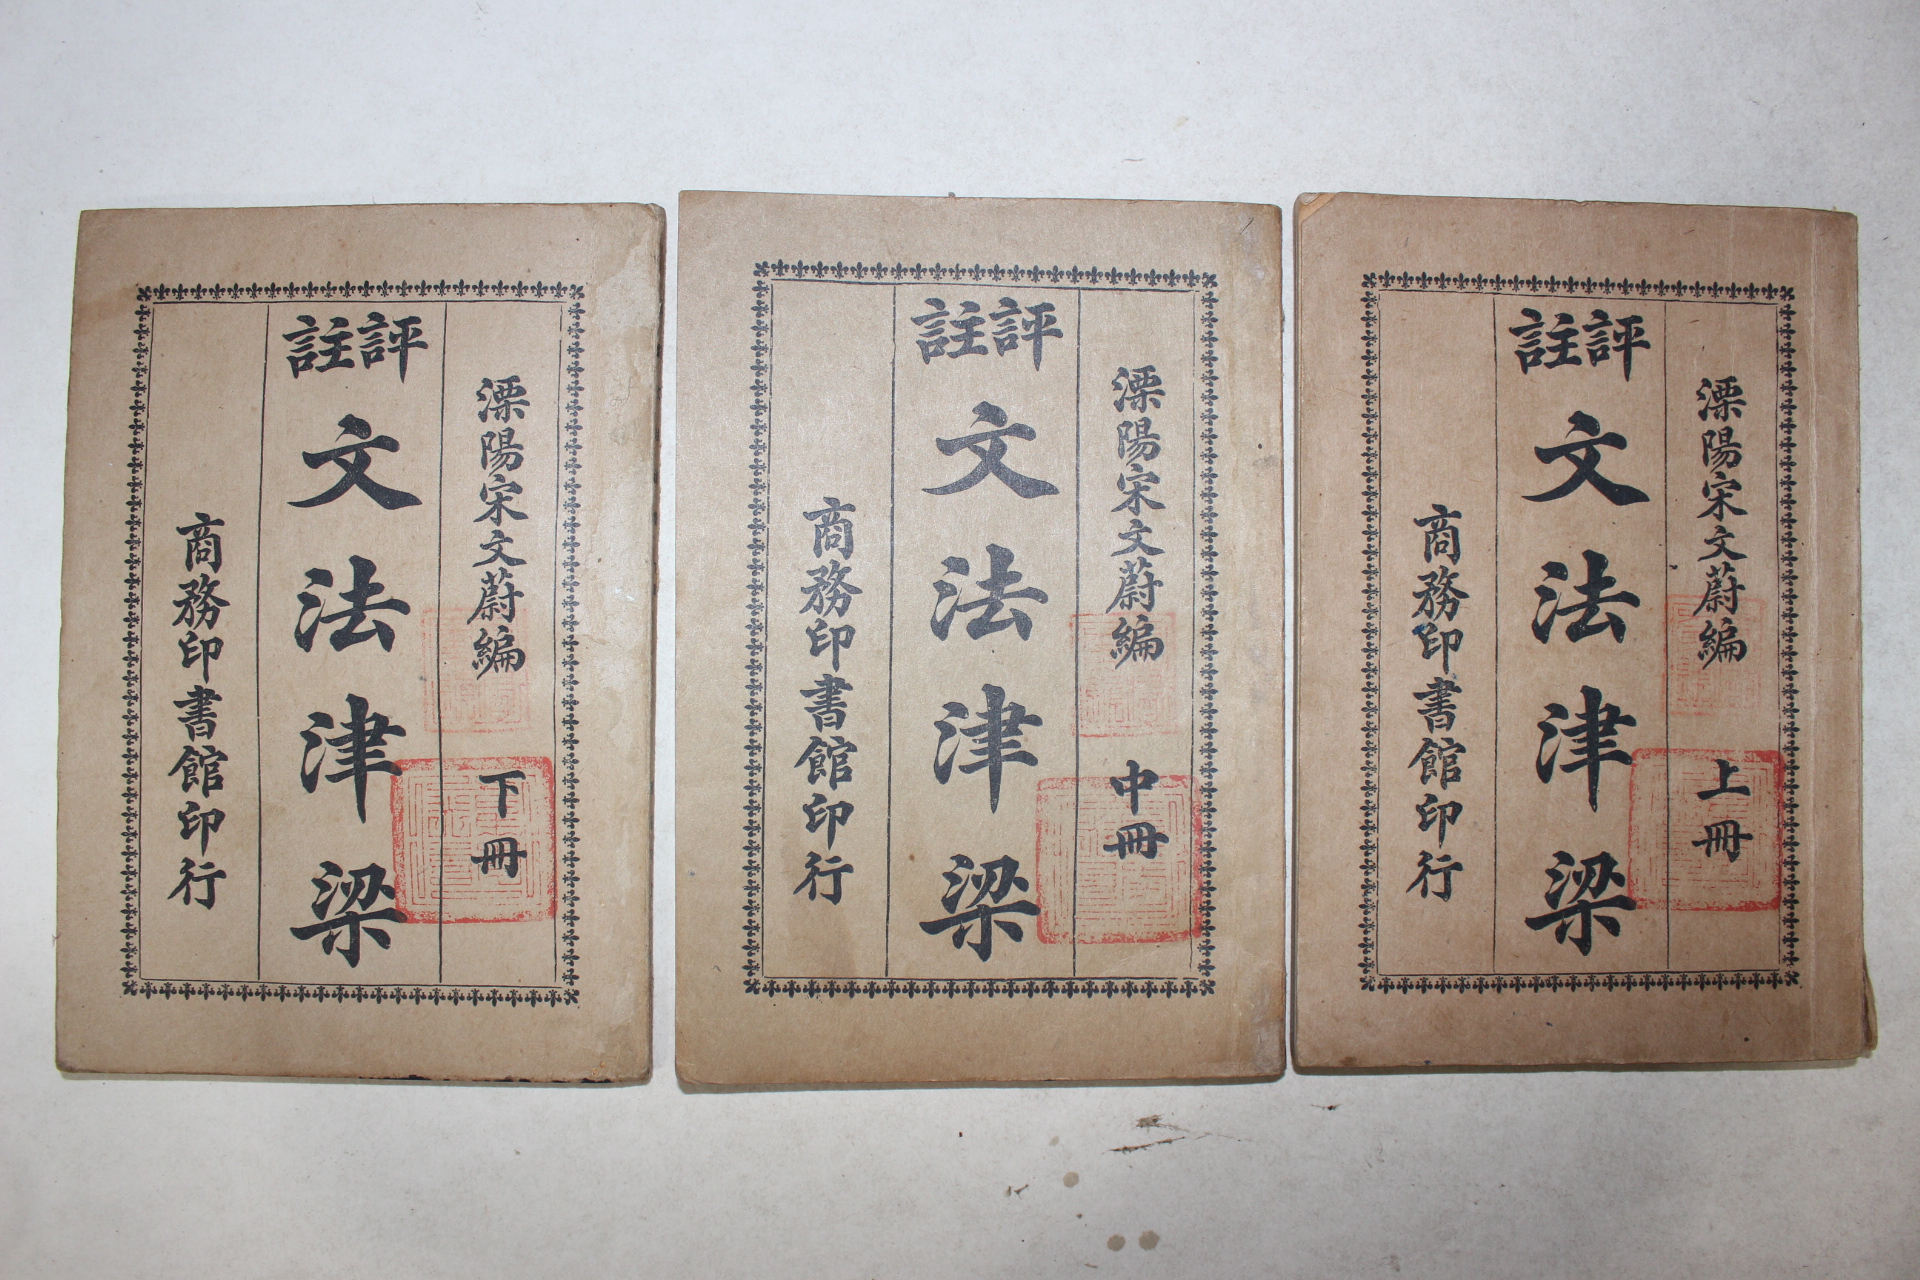 溧陽宋文蔚編 上冊
評註
文法津梁
商務印書館印行
溧陽宋文蔚編 中冊
評註
文法津梁
商務印書館印行
溧陽宋文蔚編 下冊
評註
文法津梁
商務印書館印行